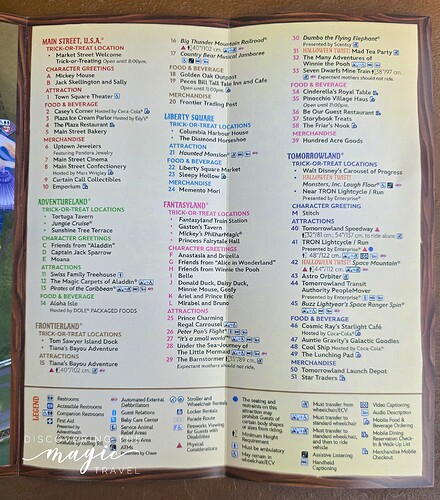 MAIN STREET, U.S.A.®
TRICK-OR-TREAT LOCATION
• Market Street Welcome
Trick-or-Treating Open until 8:00pm.
CHARACTER GREETINGS
A Mickey Mouse
B Jack Skellington and Sally
ATTRACTION
1 Town Square Theater
FOOD & BEVERAGE
2 Casey's Corner Hosted by Coca-Cola®
3 Plaza Ice Cream Parlor Hosted by Edy's®
4 The Plaza Restaurant
5 Main Street Bakery
MERCHANDISE
6 Uptown Jewelers
Featuring Pandora Jewelry
7 Main Street Cinema
8 Main Street Confectionery
Hosted by Mars Wrigley
9 Curtain Call Collectibles
10 Emporium
ADVENTURELAND®
TRICK-OR-TREAT LOCATIONS
• Tortuga Tavern
• Jungle Cruise®
• Sunshine Tree Terrace
CHARACTER GREETINGS
C Friends from "Aladdin"
D Captain Jack Sparrow
E Moana
ATTRACTIONS
11 Swiss Family Treehouse
12 The Magic Carpets of Aladdin®
13 Pirates of the Caribbean®
FOOD & BEVERAGE
14 Aloha Isle
Hosted by DOLE® PACKAGED FOODS
FRONTIERLAND®
TRICK-OR-TREAT LOCATIONS
• Tom Sawyer Island Dock
• Tiana's Bayou Adventure
ATTRACTIONS
15 Tiana's Bayou Adventure
40"/102 cm.
16 Big Thunder Mountain Railroad®
40"/102 cm.
17 Country Bear Musical Jamboree
FOOD & BEVERAGE
18 Golden Oak Outpost
19 Pecos Bill Tall Tale Inn and Cafe
Open until 9:00pm.
MERCHANDISE
20 Frontier Trading Post
LIBERTY SQUARE
TRICK-OR-TREAT LOCATIONS
• Columbia Harbour House
• The Diamond Horseshoe
ATTRACTION
21 Haunted Mansion®
FOOD & BEVERAGE
22 Liberty Square Market
23 Sleepy Hollow
MERCHANDISE
24 Memento Mori
FANTASYLAND®
TRICK-OR-TREAT LOCATIONS
• Fantasyland Train Station
• Gaston's Tavern
• Mickey's PhilharMagic®
• Princess Fairytale Hall
CHARACTER GREETINGS
F Anastasia and Drizella
G Friends from "Alice in Wonderland"
H Friends from Winnie the Pooh
I Belle
J Donald Duck, Daisy Duck,
Minnie Mouse, Goofy
K Ariel and Prince Eric
L Mirabel and Bruno
ATTRACTIONS
25 Prince Charming
Regal Carrousel
26 Peter Pan's Flight®
27 "it's a small world"®
28 Under the Sea-Journey of
The Little Mermaid
29 The Barnstormer
Expectant mothers should not ride.
30 Dumbo the Flying Elephant®
Presented by Scentsy
31 HALLOWEEN TWIST! Mad Tea Party
32 The Many Adventures of
Winnie the Pooh
33 Seven Dwarfs Mine Train 38"/97 cm.
Expectant mothers should not ride.
FOOD & BEVERAGE
34 Cinderella's Royal Table
35 Pinocchio Village Haus
Open until 11:00pm.
36 Be Our Guest Restaurant
37 Storybook Treats
38 The Friar's Nook
MERCHANDISE
39 Hundred Acre Goods
TOMORROWLAND®
TRICK-OR-TREAT LOCATIONS
• Walt Disney's Carousel of Progress
• HALLOWEEN TWIST!
Monsters, Inc. Laugh Floor®
• Near TRON Lightcycle / Run
Presented by Enterprise®
CHARACTER GREETING
M Stitch
ATTRACTIONS
40 Tomorrowland Speedway
32"/81 cm.; 54"/137 cm. to ride alone
41 TRON Lightcycle / Run
Presented by Enterprise®
48"/122 cm.
42 HALLOWEEN TWIST! Space Mountain®
44"/112 cm.
43 Astro Orbiter
44 Tomorrowland Transit
Authority PeopleMover
Presented by Enterprise®
45 Buzz Lightyear's Space Ranger Spin®
FOOD & BEVERAGE
46 Cosmic Ray's Starlight Café
Hosted by Coca-Cola®
47 Auntie Gravity's Galactic Goodies
48 Cool Ship Hosted by Coca-Cola®
49 The Lunching Pad
MERCHANDISE
50 Tomorrowland Launch Depot
51 Star Traders
LEGEND
Restrooms
Accessible Restrooms
Companion Restrooms
First Aid
Automated External
Defibrillators
Guest Relations
Baby Care Center
Service Animal
Relief Areas
Smoking Area
ATMs
Presented by Chase
Stroller and
Wheelchair Rentals
Locker Rentals
Pirate Route
Fireworks Viewing
for Guests with
Disabilities
Physical
Considerations
The seating and
restraints on this
attraction may
prohibit Guests of
certain body shapes
or sizes from riding.
Minimum Height
Requirement
Must be ambulatory
May remain in
wheelchair/ECV
Must transfer from
wheelchair/ECV
Must transfer
to standard
wheelchair
Must transfer to
standard wheelchair,
and then to ride
vehicle
Assistive Listening
Handheld
Captioning
Video Captioning
Audio Description
Mobile Food &
Beverage Ordering
Mobile Dining
Reservation Check-
In & Walk-Up List
Merchandise Mobile
Checkout
DISCOVERING
magic
TRAVEL